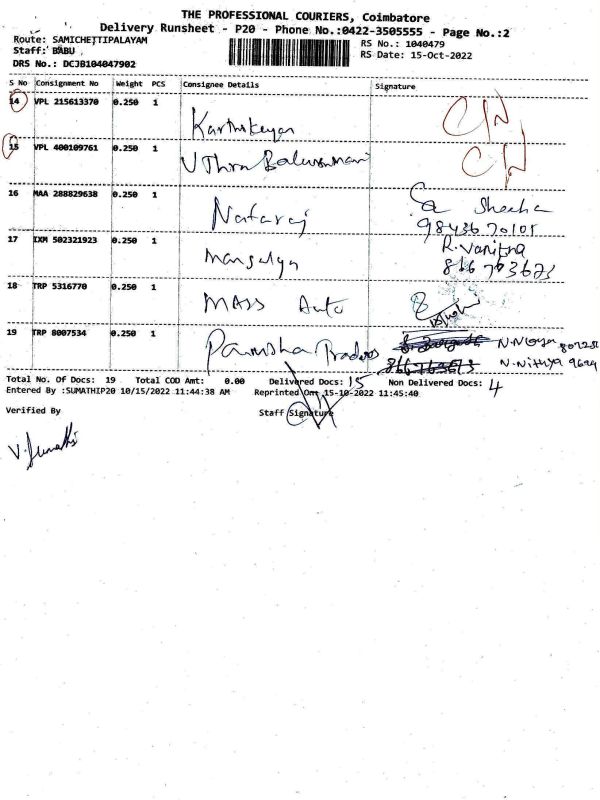 THE PROFESSIONAL COURIERS, Coimbatore
Delivery Runsheet - P20 - Phone No.:0422-3505555 - Page No.:2
Route: SAMICHETTIPALAYAM
Staff: BABU
DRS No.: DCJB104047902
RS No.: 1040479
RS Date: 15-Oct-2022
S No Consignment No Weight PCS Consignee Details Signature
14 VPL 215613370 0.250 1 Karthikeyan CN
15 VPL 400109761 0.250 1 UThra CN
16 MAA 288829638 0.250 1 Nataraj
9843670101
17 IXM 502321923 0.250 1 R. Vanitha
18 TRP 5316770 0.250 1 MASS Auto
19 TRP 8007534 0.250 1 Traders
N. Nithya
Total No. Of Docs: 19 Total COD Amt: 0.00 Delivered Docs: 15 Non Delivered Docs: 4
Entered By :SUMATHIP20 10/15/2022 11:44:38 AM Reprinted On: 15-10-2022 11:45:40
Verified By Staff Signature
V. Sumathi